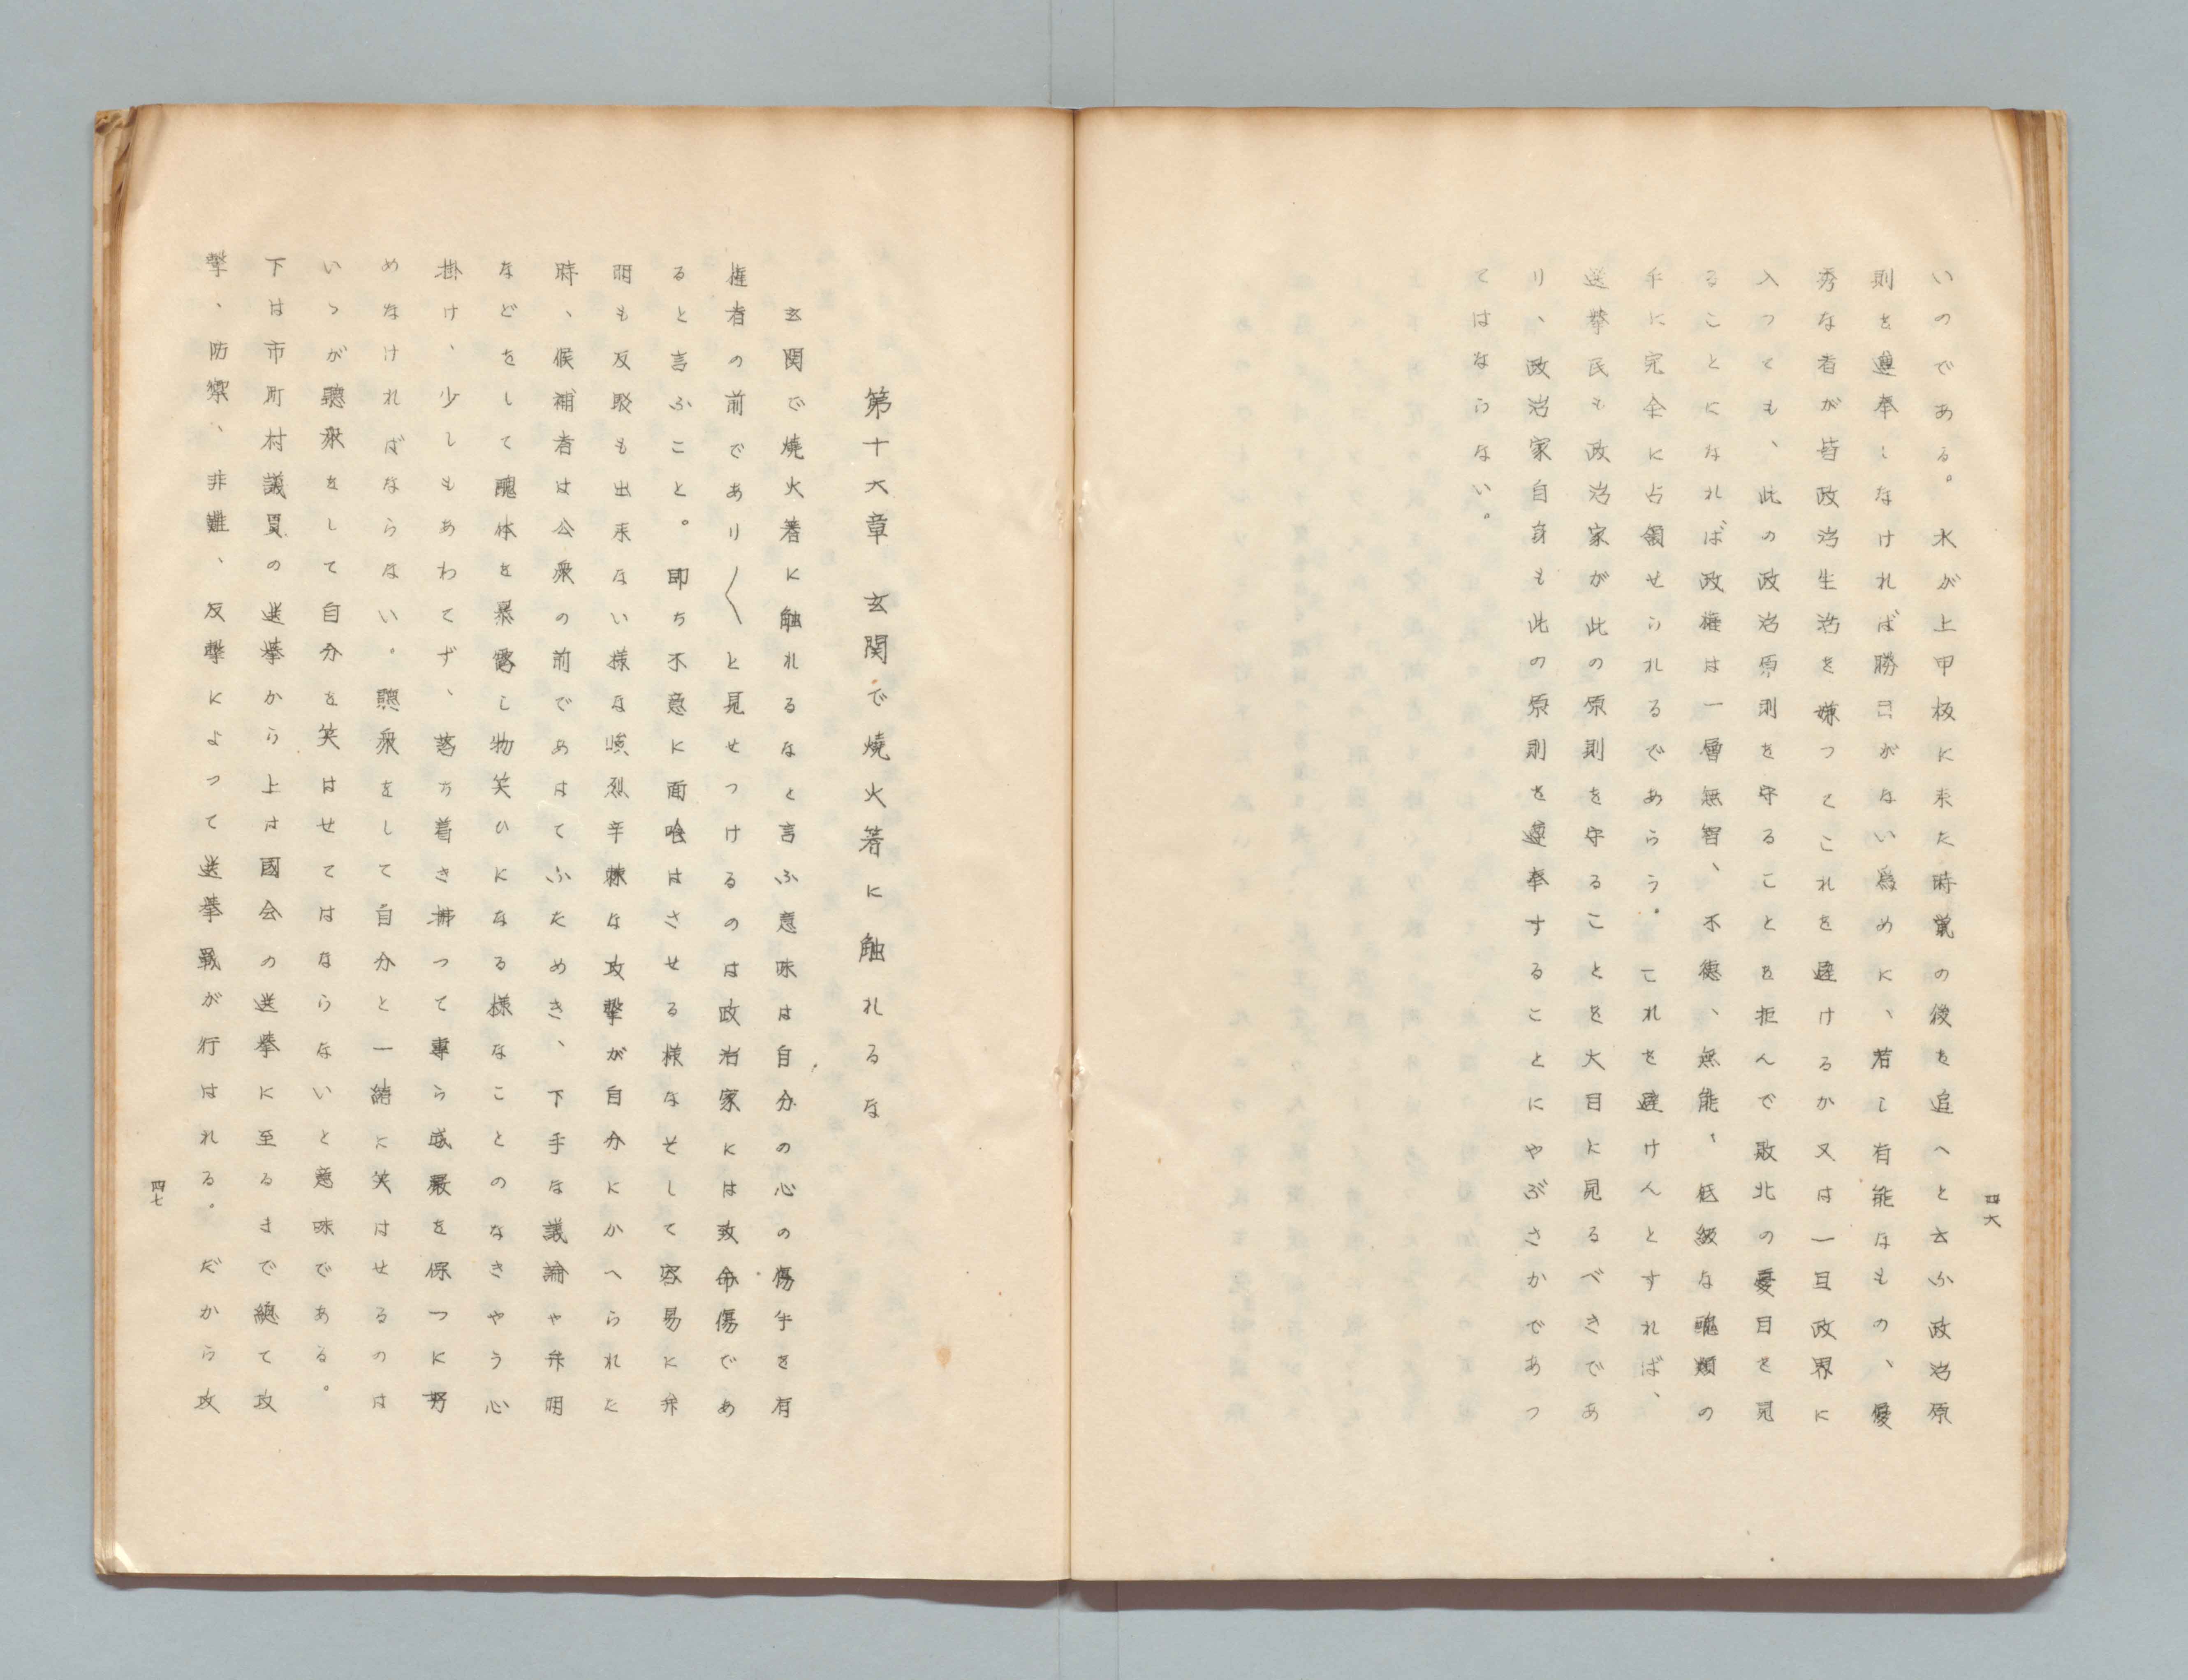 いのである。水が上甲板に来た時鼠の後を追へと云ふ政治原
則を遵奉しなければ勝目がない為めに、若し有能なもの、優
秀な者が皆政治生活を嫌つてこれを避けるか又は一旦政界に
入つても、此の政治原則を守ることを拒んで敗北の憂目を見
ることになれば政権は一層無智、不徳、無能、低級な醜類の
手に完全に占領せられるであらう。これを避けんとすれば、
選挙民も政治家が此の原則を守ることを大目に見るべきであ
り、政治家自身も此の原則を遵奉することにやぶさかであつ
てはならない。
四六
第十六章　玄関で焼火箸に触れるな
玄関で焼火箸に触れるなと言ふ意味は自分の心の傷手を有
権者の前であり〱と見せつけるのは政治家には致命傷であ
ると言ふこと。即ち不意に面喰はさせる様なそして容易に弁
明も反駁も出来ない様な峻烈辛辣な攻撃が自分にかへられた
時、候補者は公衆の前であはてふためき、下手な議論や弁明
などをして醜体を暴露し物笑ひになる様なことのなきやう心
掛け、少しもあわてず、落ち着き払つて専ら威厳を保つに努
めなければならない。聴衆をして自分と一緒に笑はせるのは
いゝが聴衆をして自分を笑はせてはならないと意味である。
下は市町村議員の選挙から上は國会の選挙に至るまで總て攻
撃、防禦、非難、反撃によつて選挙戦が行はれる。だから攻
四七